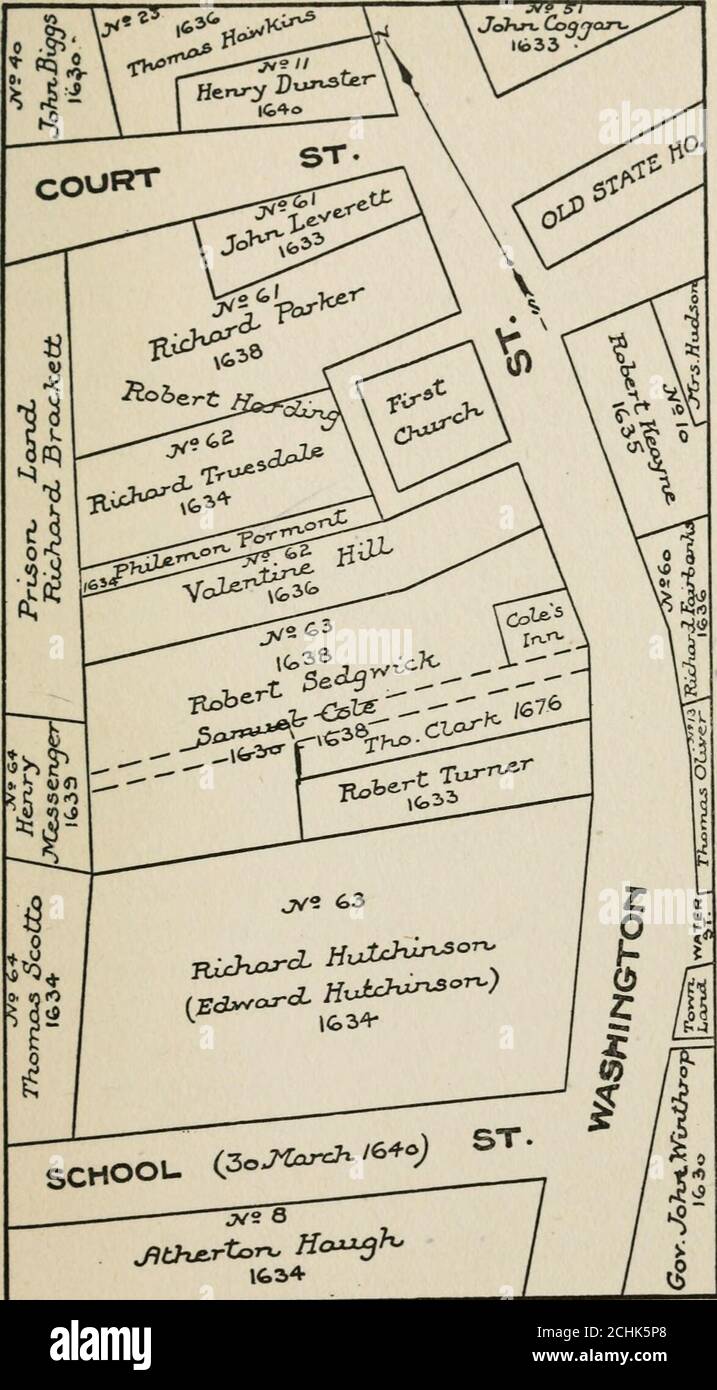 Nº 40
John Biggs
1630.
Nº 23
1636
Thomas Hawkins
Nº 11
Henry Dunster
1640
N
Nº 51
John Coggan
1633
COURT ST.
OLD STATE HO.
Nº 61
John Leverett
1633
S.
Nº 61
Richard Parker
1638
Robert Harding
First
Church
Robert Keayne
1635
Nº 10
Mrs. Hudson
Prison Land
Richard Brackett
Nº 62
Richard Truesdale
1634
1634 Philemon Pormont
Nº 62
Valentine Hill
1636
Nº 60
Richard Fairbanks
1636
Nº 63
1638
Robert Sedgwick
Cole's
Inn
Samuel Cole
1630 1638
Tho. Clark 1676
Robert Turner
1633
Nº 13
Thomas Oliver
Nº 64
Henry
Messenger
1639
Nº 64
Thomas Scotto
1634
Nº 63
Richard Hutchinson
(Edward Hutchinson)
1634
WASHINGTON ST.
WATER
ST.
Town
Land
Gov. John Winthrop
1630
SCHOOL (30 March 1640) ST.
Nº 8
Atherton Haugh
1634
alamy
alamy
Image ID: 2CHK5P8
www.alamy.com